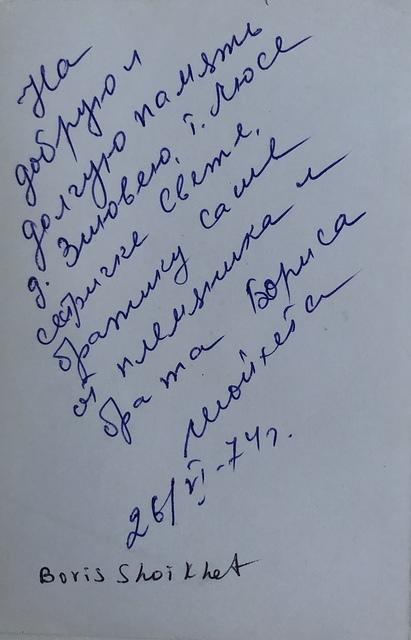 На
добрую и
долгую память
д. Зиновею, т. Люсе
сестричке свете,
братику саше
от племянника и
брата Бориса
Шойхета
26/VI-74г.
Boris Shoikhet